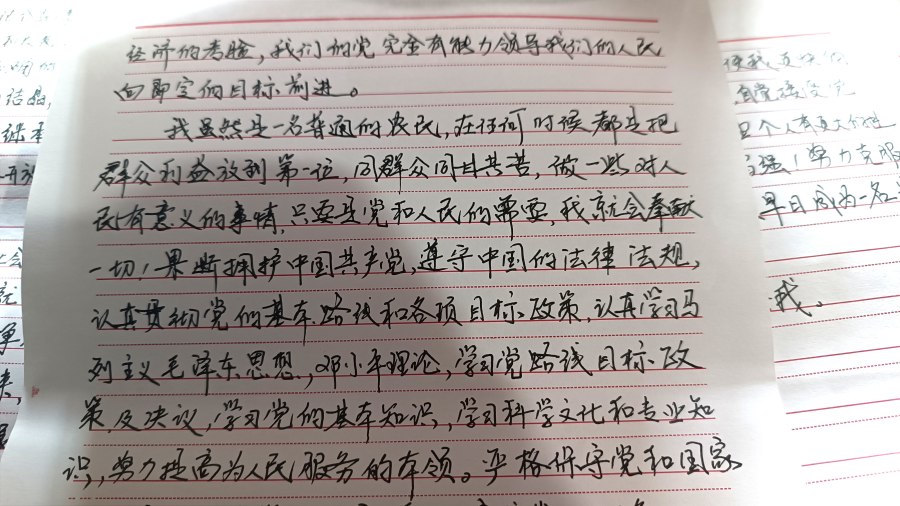 经济的考验，我们的党完全有能力领导我们的人民
向即定的目标前进。
我虽然是一名普通的农民，在任何时候都是把
群众利益放到第一位，同群众同甘共苦，做一些对人
民有意义的事情，只要是党和人民的需要，我就会奉献
一切！果断拥护中国共产党，遵守中国的法律法规，
认真贯彻党的基本路线和各项目标政策，认真学习马
列主义毛泽东思想，邓小平理论，学习党路线目标政
策及决议，学习党的基本知识，学习科学文化和专业知
识，努力提高为人民服务的本领。严格保守党和国家
结晶，
自觉接受党
努力克服
早日成为一名
我。